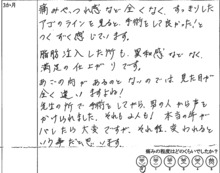 3か月
痛みや、つれ感など全くなく、すっきりした
アゴのラインを見ると、手術をして良かった!と
つくづく感じています。
脂肪注入した所も、異和感などなく、
満足の仕上がりです。
あごの肉があるのとないのでは見た目が
全く違いますよね!
先生の所で手術をしてから、男の人から声を
かけられました。それも2人も! 本当の年が
バレたら大変ですが、それ程、変われると
いう事だと思います。
痛みの程度はどのくらいでしたか?